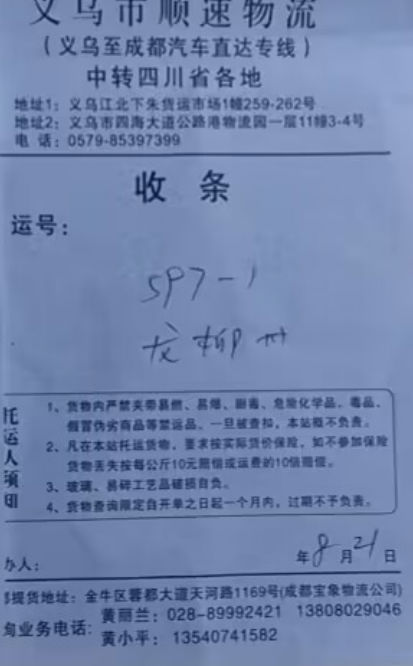 义乌市顺速物流
（义乌至成都汽车直达专线）
中转四川省各地
地址1：义乌江北下朱货运市场1幢259-262号
地址2：义乌市四海大道公路港物流园一层11幢3-4号
电 话：0579-85397399
收 条
运号：
597-1
托运人须知
1、货物内严禁夹带易燃、易爆、剧毒、危险化学品、毒品、
假冒伪劣商品等禁运品，一旦被查扣，本站概不负责。
2、凡在本站托运货物，要求按实际货价保险，如不参加保险
货物丢失按每公斤10元赔偿或运费的10倍赔偿。
3、玻璃、易碎工艺品破损自负。
4、货物查询限定自开单之日起一个月内，过期不予负责。
办人：
年8月21日
提货地址：金牛区蓉都大道天河路1169号(成都宝象物流公司)
询业务电话：
黄丽兰：028-89992421 13808029046
黄小平：13540741582